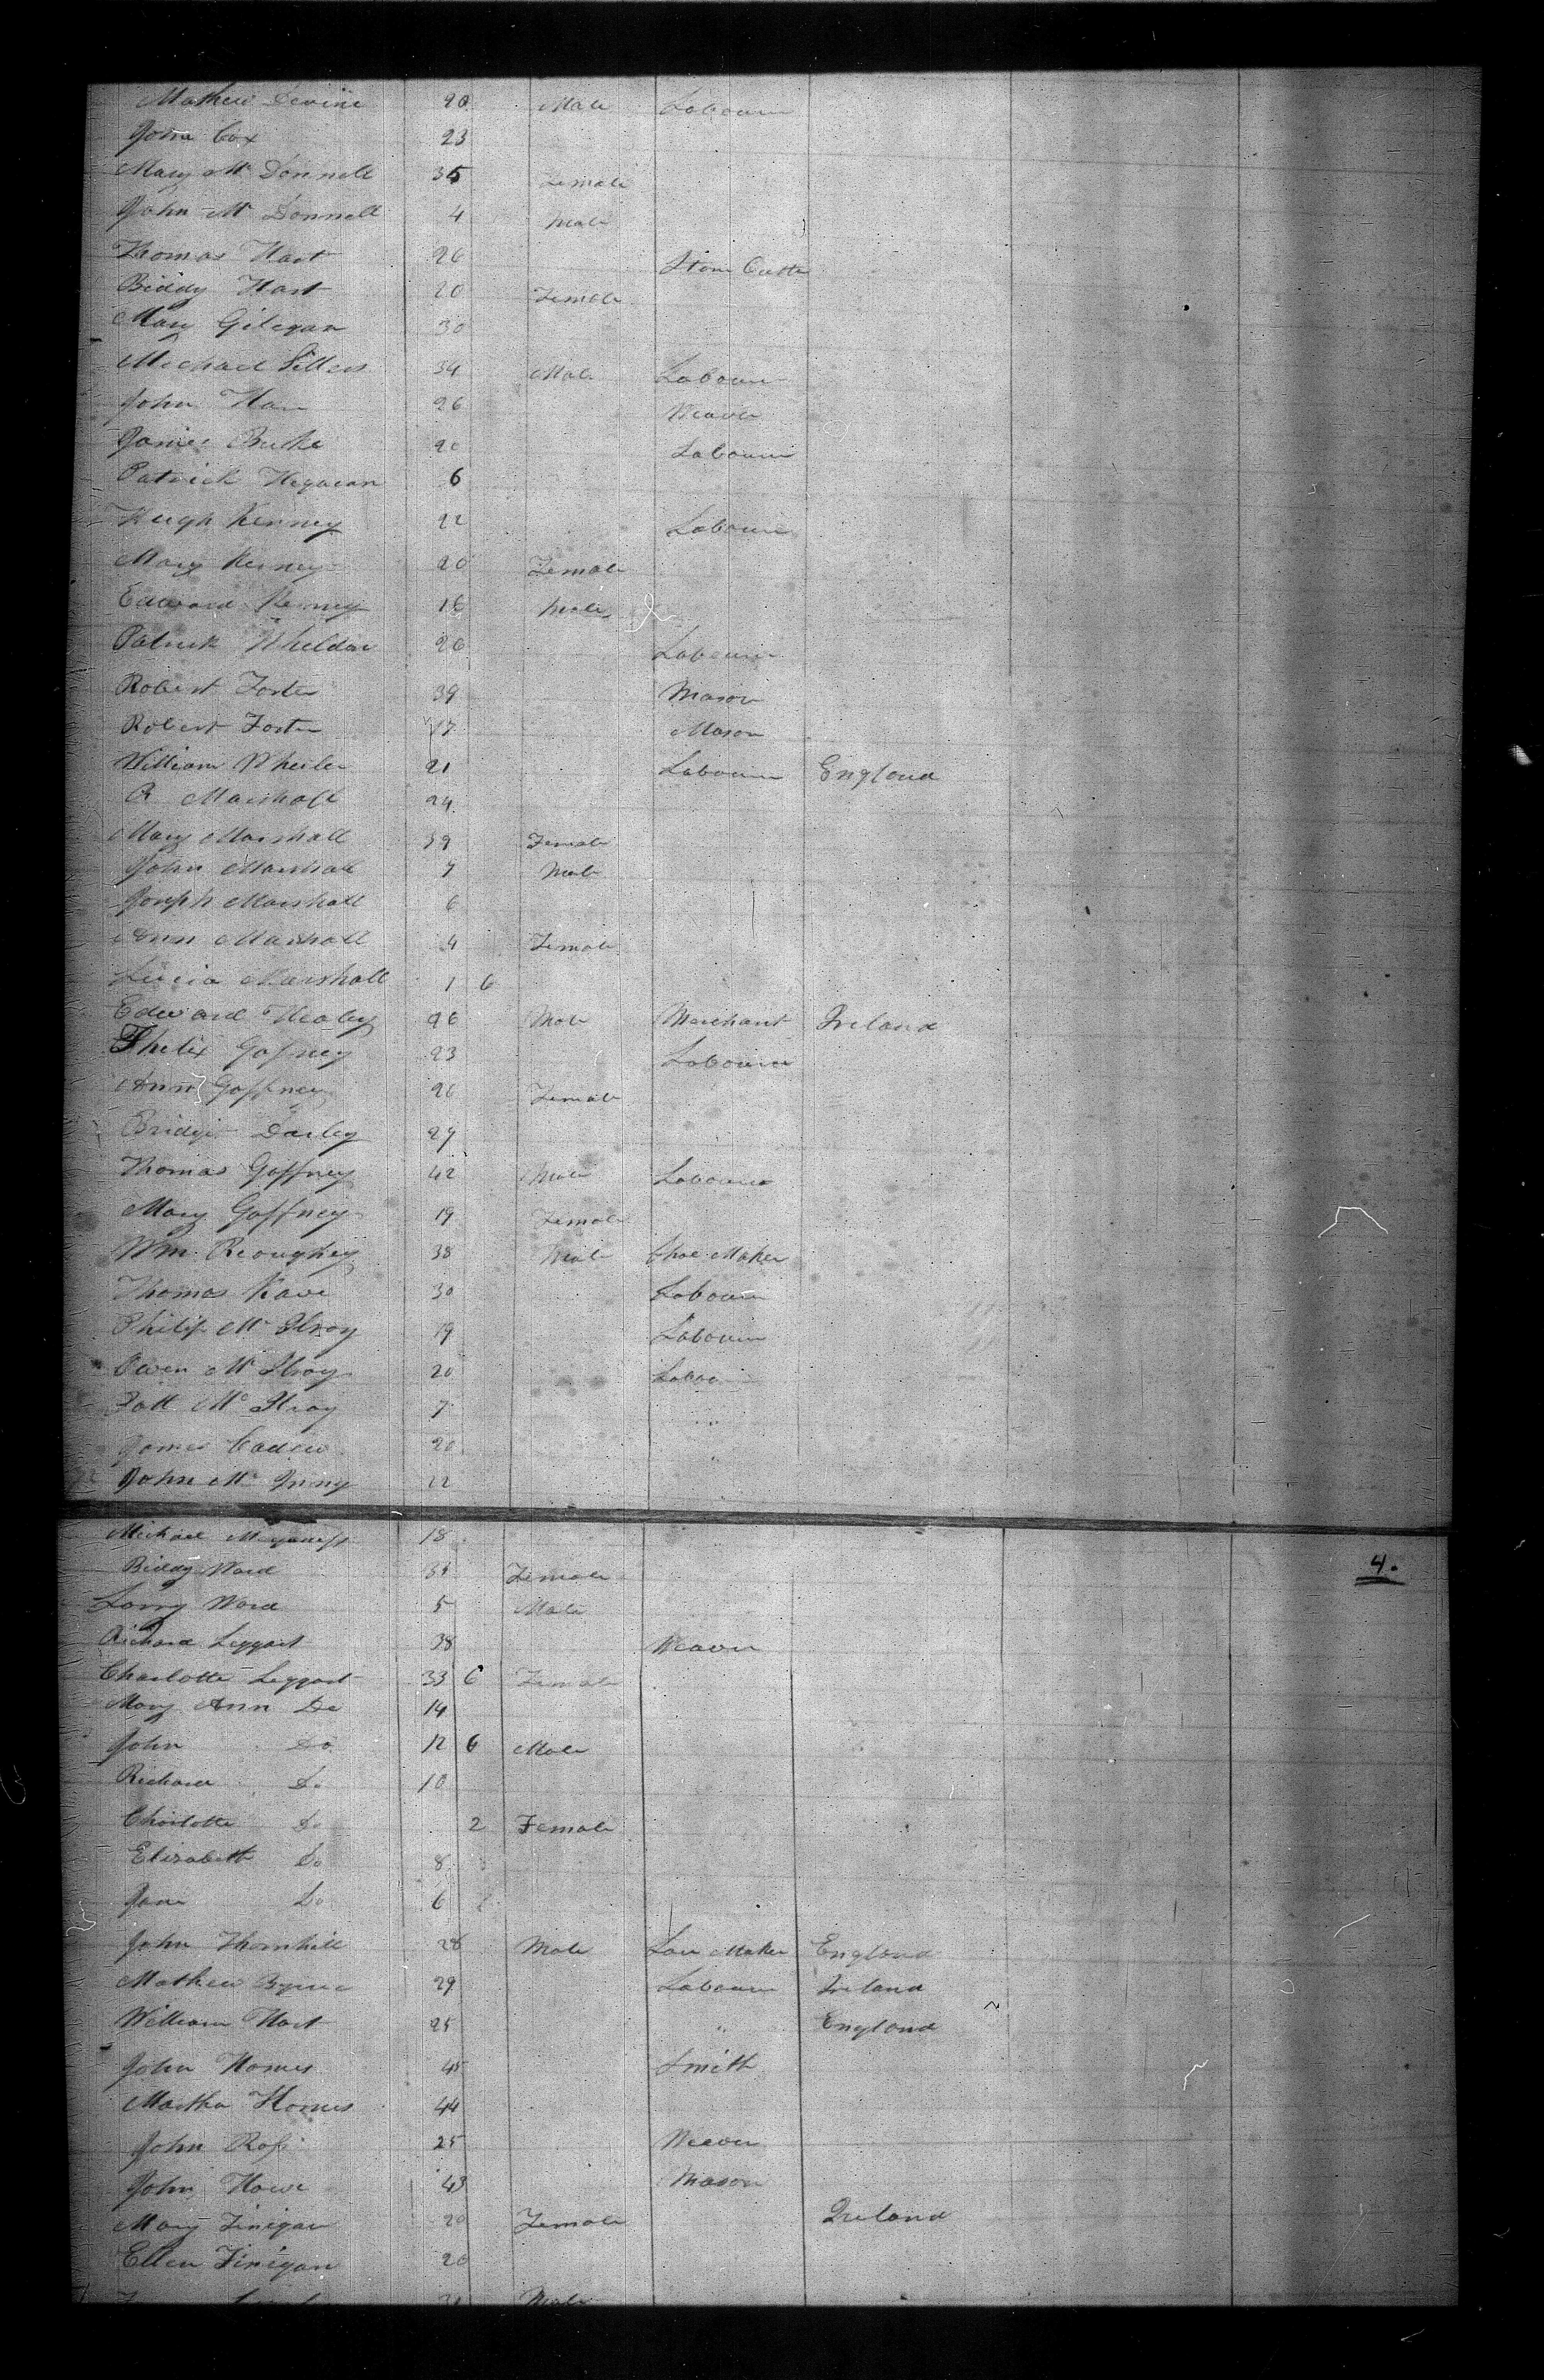 Mathew Devine 20 Male Labourer
John Cox 23
Mary Mc Donnell 35 Female
John Mc Donnell 4 Male
Thomas Hart 26 Stone Cutter
Biddy Hart 20 Female
Mary Gilegan 30
Michael 34 Male Labourer
John 26 Weaver
James Burke 20 Labourer
Patrick 6
Hugh Kenney 22 Labourer
Mary Kenney 20 Female
Edward Kenney 16 Male
Patrick Wheldon 26 Labourer
Robert Foster 39 Mason
Robert Foster 17 Mason
William Wheeler 21 Labourer England
R Marshall 24
Mary Marshall 39 Female
John Marshall 7 Male
Joseph Marshall 6
Ann Marshall 4 Female
Lucia Marshall 1 6
Edward Healey 26 Male Merchant Ireland
Phelix Gafney 23 Labourer
Ann Gaffney 26 Female
Bridget Darley 27
Thomas Gaffney 42 Male Labourer
Mary Gaffney 19 Female
Wm. Reoughey 38 Male Shoe Maker
Thomas Kave 30 Labourer
Philip Mc Ilroy 19 Labourer
Owen Mc Ilroy 20 Labou
Patt Mc Ilroy 7 "
James 20 "
John Mc 22
Michael 18
Biddy Ward Female
Larry Ward 5 Male
Richard Leggart 38 Weaver
Charlotte Leggart 33 6 Female
Mary Ann Do 14
John Do 12 6 Male
Richard Do 10
Charlotte Do 2 Female
Elizabeth Do 8
Jane Do 6
John Thornhill 28 Male Maker England
Mathew Byrne 29 Labourer Ireland
William Hart 25 " England
John Homes 45 Smith
Martha Homes 44
John Ross 25 Weaver
John Howe 43 Mason
Mary Finigan 20 Female Ireland
Ellen Finigan 20
Male
4.